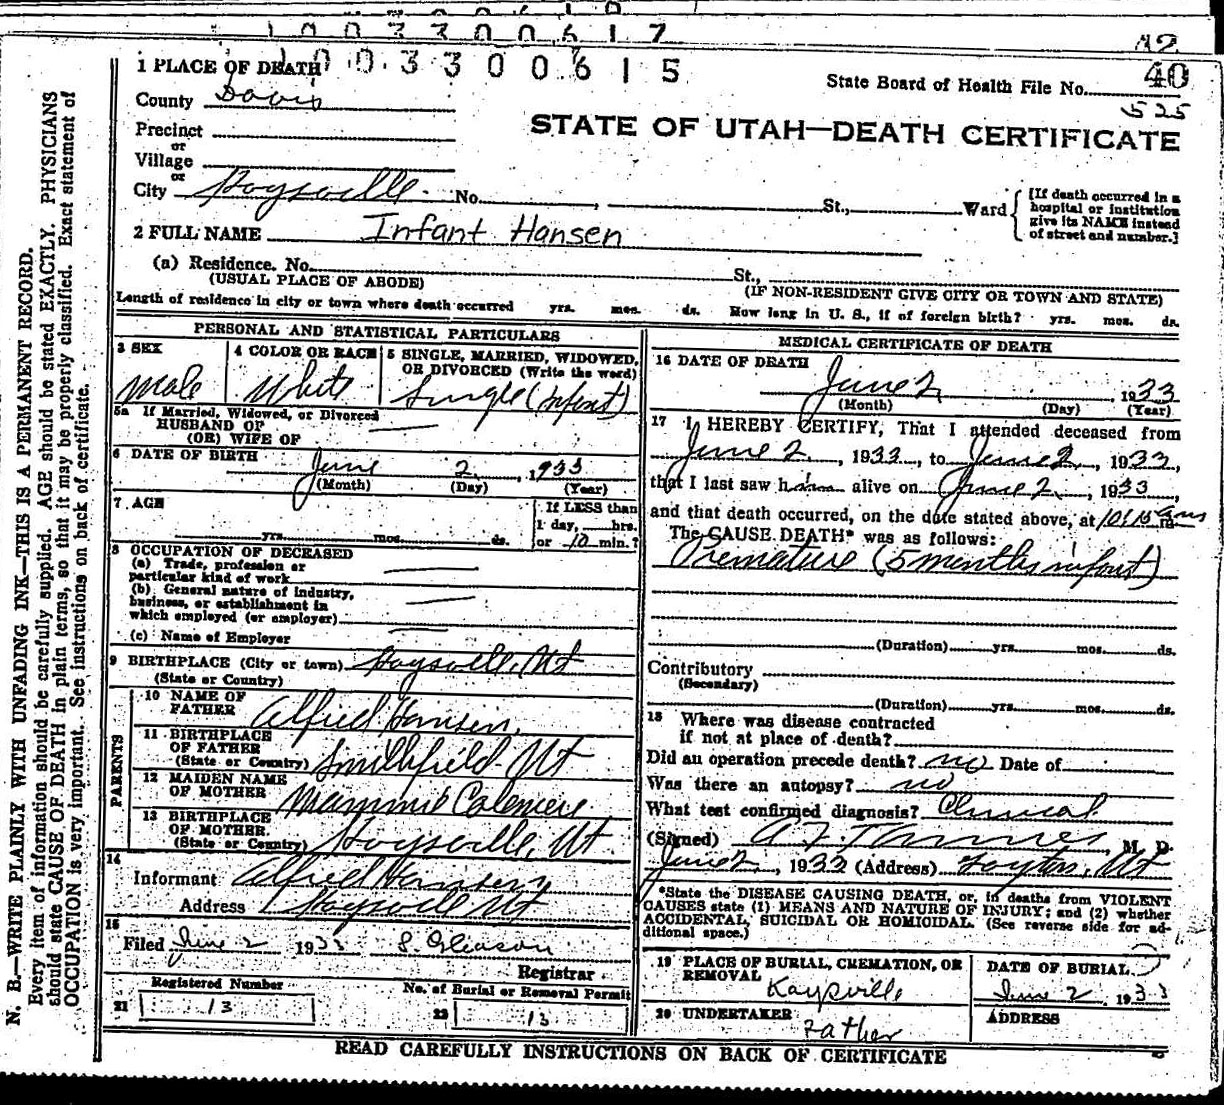 1 0 0 3 3 0 0 6 1 7
42
1 PLACE OF DEATH
1 0 0 3 3 0 0 6 1 5
State Board of Health File No. 40
525
County Davis
STATE OF UTAH—DEATH CERTIFICATE
Precinct
or
Village
or
City Kaysville No. , St., Ward
[If death occurred in a
hospital or institution
give its NAME instead
of street and number.]
2 FULL NAME Infant Hansen
(a) Residence. No. St.,
(USUAL PLACE OF ABODE) (IF NON-RESIDENT GIVE CITY OR TOWN AND STATE)
Length of residence in city or town where death occurred yrs. mos. ds. How long in U. S., if of foreign birth? yrs. mos. ds.
PERSONAL AND STATISTICAL PARTICULARS
3 SEX
Male
4 COLOR OR RACE
White
5 SINGLE, MARRIED, WIDOWED,
OR DIVORCED (Write the word)
Single (Infant)
5a If Married, Widowed, or Divorced
HUSBAND OF
(OR) WIFE OF
6 DATE OF BIRTH
June 2, 1933
(Month) (Day) (Year)
7 AGE
yrs. mos. ds.
If LESS than
1 day, hrs.
or 10 min.?
8 OCCUPATION OF DECEASED
(a) Trade, profession or
particular kind of work
(b) General nature of industry,
business, or establishment in
which employed (or employer)
(c) Name of Employer
9 BIRTHPLACE (City or town) Kaysville, Ut
(State or Country)
PARENTS
10 NAME OF
FATHER Alfred Hansen
11 BIRTHPLACE
OF FATHER
(State or Country) Smithfield Ut
12 MAIDEN NAME
OF MOTHER Mammie
13 BIRTHPLACE
OF MOTHER
(State or Country) Kaysville, Ut
14
Informant Alfred Hansen
Address Kaysville Ut
15
Filed June 2 1933 S. Gleason
Registrar
Registered Number
21 13
No. of Burial or Removal Permit
22 13
MEDICAL CERTIFICATE OF DEATH
16 DATE OF DEATH
June 2, 1933
(Month) (Day) (Year)
17 I HEREBY CERTIFY, That I attended deceased from
June 2, 1933, to June 2, 1933,
that I last saw him alive on June 2, 1933,
and that death occurred, on the date stated above, at 10:15 am
The CAUSE DEATH* was as follows:
Premature (5 months infant)
(Duration) yrs. mos. ds.
Contributory
(Secondary)
(Duration) yrs. mos. ds.
18 Where was disease contracted
if not at place of death?
Did an operation precede death? no Date of
Was there an autopsy? no
What test confirmed diagnosis? Clinical
(Signed) A Z Tanner M. D.
June 2, 1933 (Address) Layton, Ut
*State the DISEASE CAUSING DEATH, or, in deaths from VIOLENT
CAUSES state (1) MEANS AND NATURE OF INJURY; and (2) whether
ACCIDENTAL, SUICIDAL OR HOMICIDAL. (See reverse side for ad-
ditional space.)
19 PLACE OF BURIAL, CREMATION, OR
REMOVAL
Kaysville
DATE OF BURIAL
June 2, 1933
20 UNDERTAKER
Father
ADDRESS
READ CAREFULLY INSTRUCTIONS ON BACK OF CERTIFICATE
N. B.—WRITE PLAINLY WITH UNFADING INK—THIS IS A PERMANENT RECORD.
Every item of information should be carefully supplied. AGE should be stated EXACTLY. PHYSICIANS
should state CAUSE OF DEATH in plain terms, so that it may be properly classified. Exact statement of
OCCUPATION is very important. See instructions on back of certificate.